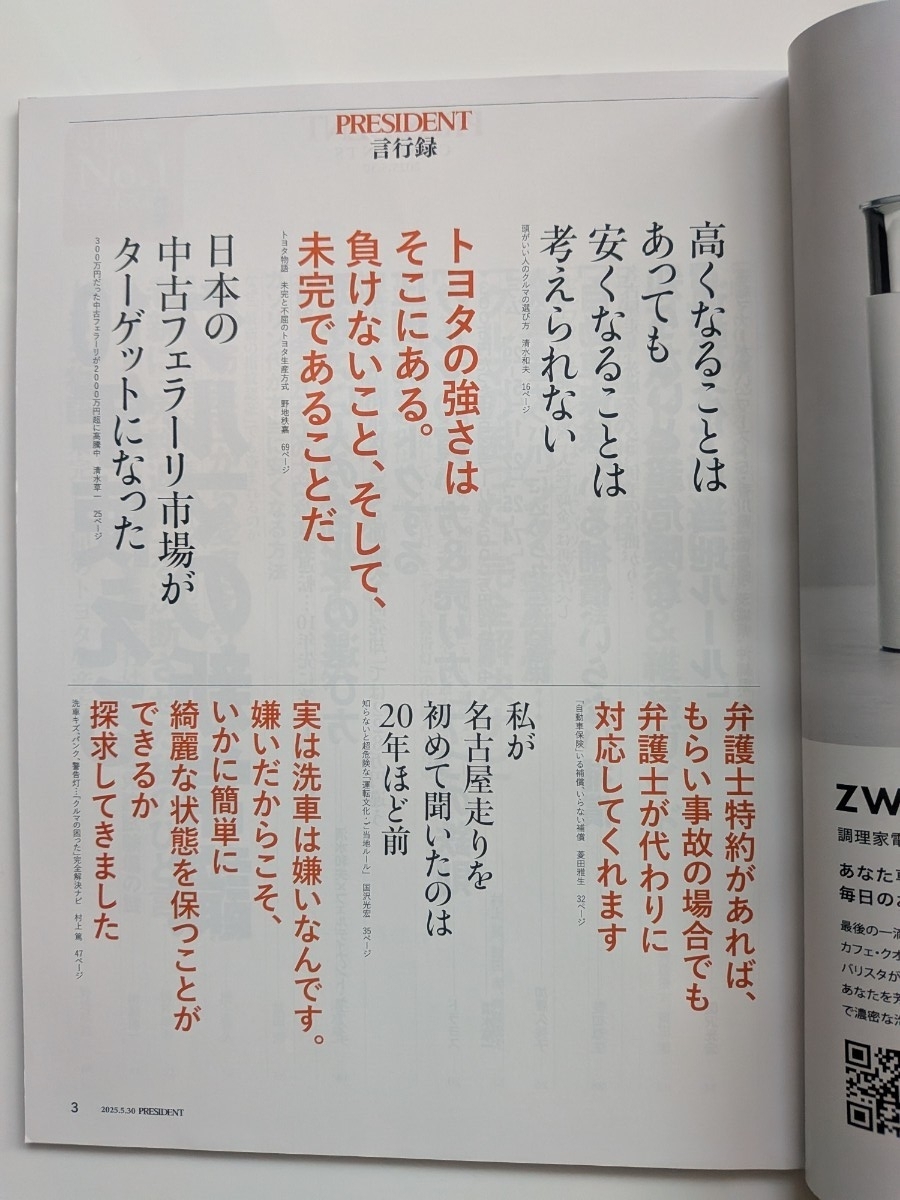 PRESIDENT
言行録
高くなることは
あっても
安くなることは
考えられない
頭がいい人のクルマの選び方　清水和夫　16ページ
トヨタの強さは
そこにある。
負けないこと、そして、
未完であることだ
トヨタ物語　未完と不屈のトヨタ生産方式　野地秩嘉　69ページ
日本の
中古フェラーリ市場が
ターゲットになった
300万円だった中古フェラーリが2000万円超に高騰中　清水草一　25ページ
弁護士特約があれば、
もらい事故の場合でも
弁護士が代わりに
対応してくれます
「自動車保険」いる補償、いらない補償　菱田雅生　32ページ
私が
名古屋走りを
初めて聞いたのは
20年ほど前
知らないと超危険な「運転文化・ご当地ルール」　国沢光宏　35ページ
実は洗車は嫌いなんです。
嫌いだからこそ、
いかに簡単に
綺麗な状態を保つことが
できるか
探求してきました
洗車キズ、パンク、警告灯…「クルマの困った」完全解決ナビ　村上 篤　47ページ
3
2025.5.30 PRESIDENT
ZW
調理家電
あなた
毎日の
最後の一滴
カフェ・クオ
バリスタが
あなたを
で濃密な